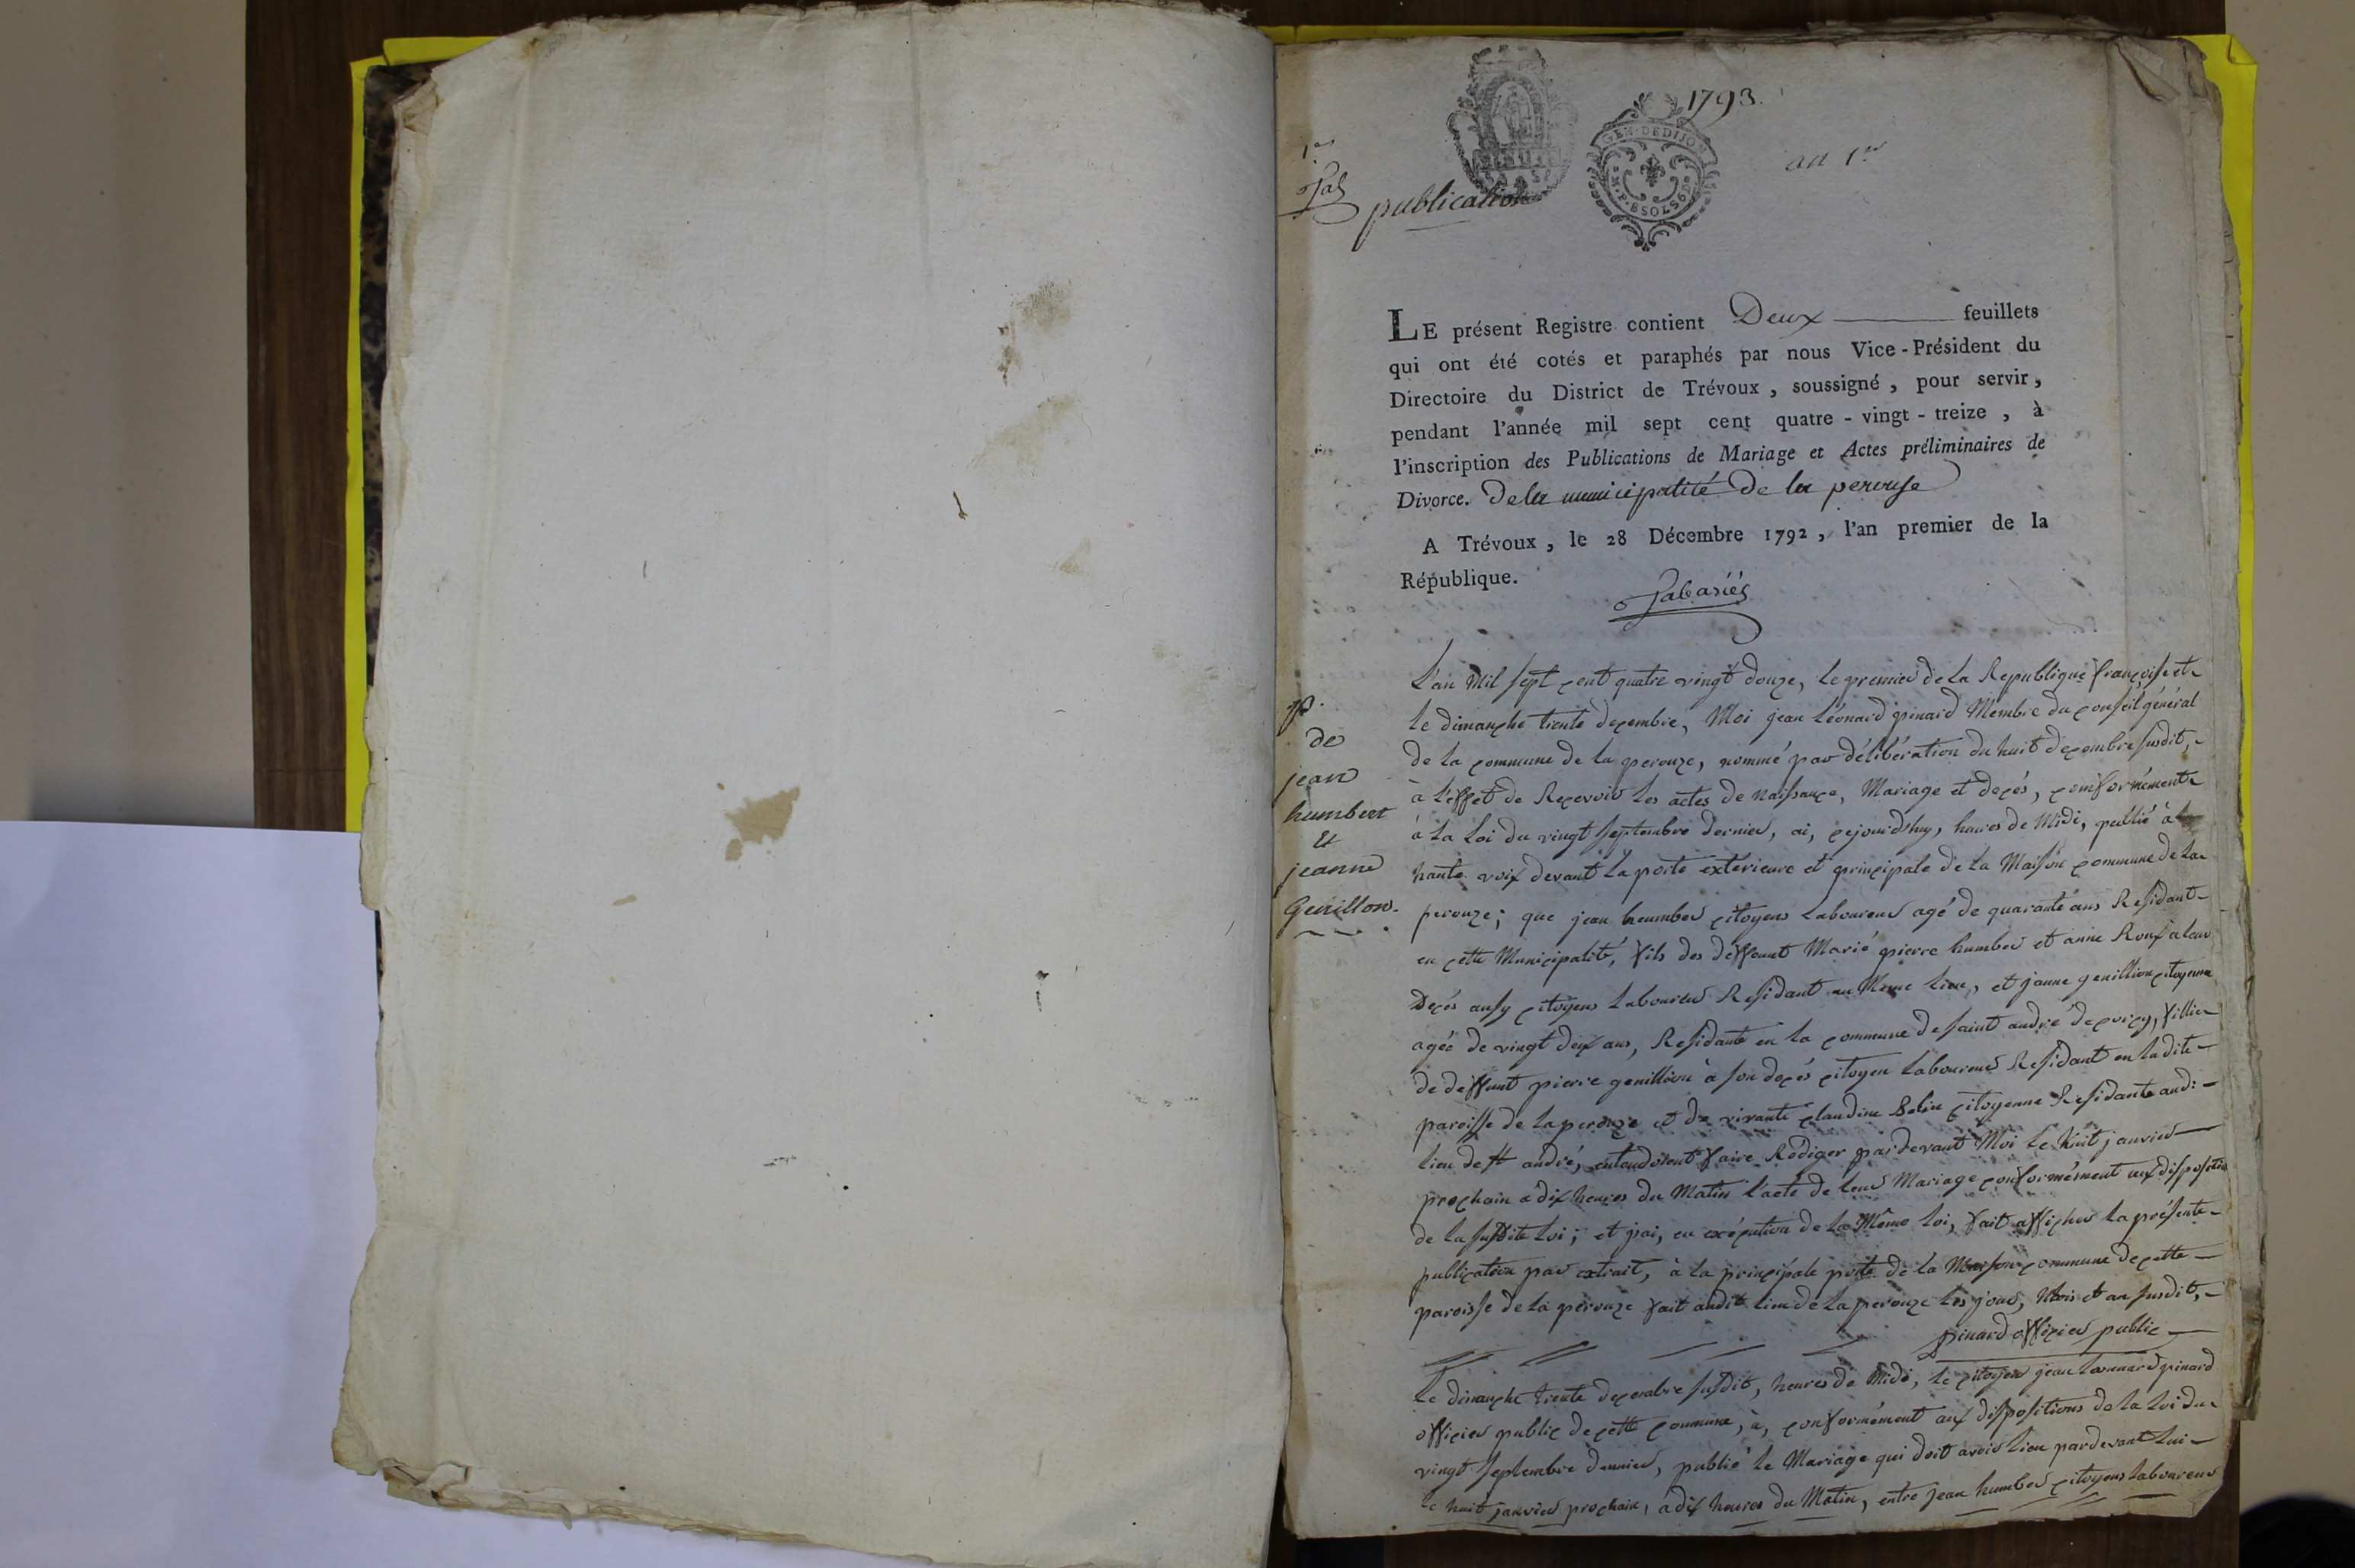 1793.
GEN. DE DIJON
an 1er
1er
publication
LE présent Registre contient Deux feuillets
qui ont été cotés et paraphés par nous Vice-Président du
Directoire du District de Trévoux, soussigné, pour servir,
pendant l'année mil sept cent quatre-vingt-treize, à
l'inscription des Publications de Mariage et Actes préliminaires de
Divorce. De la municipalité De la perouse
A Trévoux, le 28 Décembre 1792, l'an premier de la
République.
L'an Mil sept cent quatre vingt douze, le premier de la Republique françoise et
le dimanche trente decembre, Moi jean Léonard pinard Membre du conseil général
de la commune de la perouze, nommé par délibération du huit decembre susdit,
à l'effet de Recevoir les actes de naissance, Mariage et decés, conformément
à la Loi du vingt septembre dernier, ai, cejourdhuy, heures de Midi, publié à
haute voix devant la porte exterieure et principale de la Maison commune de la
perouze; que jean humber citoyens laboureur agé de quarante ans Residant
en cette Municipalité, fils des deffunt Marié pierre humber et anne Roux à leur
Decés ausy citoyens laboureur Residant au Meme lieu, et janne genillion citoyenne
agée de vingt deux ans, Residante en la commune de saint andré de corcy, fillie
de deffunt pierre genillion à son decés citoyen laboureur Residant en la dite
paroisse de la perouze et de vivante claudine Belin citoyenne Residante audi
lieu de st andré, entendoient faire Rédiger pardevant Moi le huit janvier
prochain à dix heures du Matin l'acte de leur Mariage conformément aux dispositio
de la susdite Loi; et j'ai, en exécution de la Même loi, fait afficher la présente
publication par extrait, à la principale porte de la Maison commune de cette
paroisse de la perouze fait audit lieu de la perouze les jour, Mois et an susdit,
pinard officier public
Le dimanche trente decembre susdit, heures de Midi, le citoyen jean Leonnard pinard
officier public de cette commune, à, conformément aux dispositions de la Loi du
vingt septembre dernier, publié le Mariage qui doit avoir lieu pardevant lui
le huit janvier prochain, à dix heures du Matin, entre jean humber citoyens laboureur
p.
de
jean
humbert
Et
jeanne
Genillon.